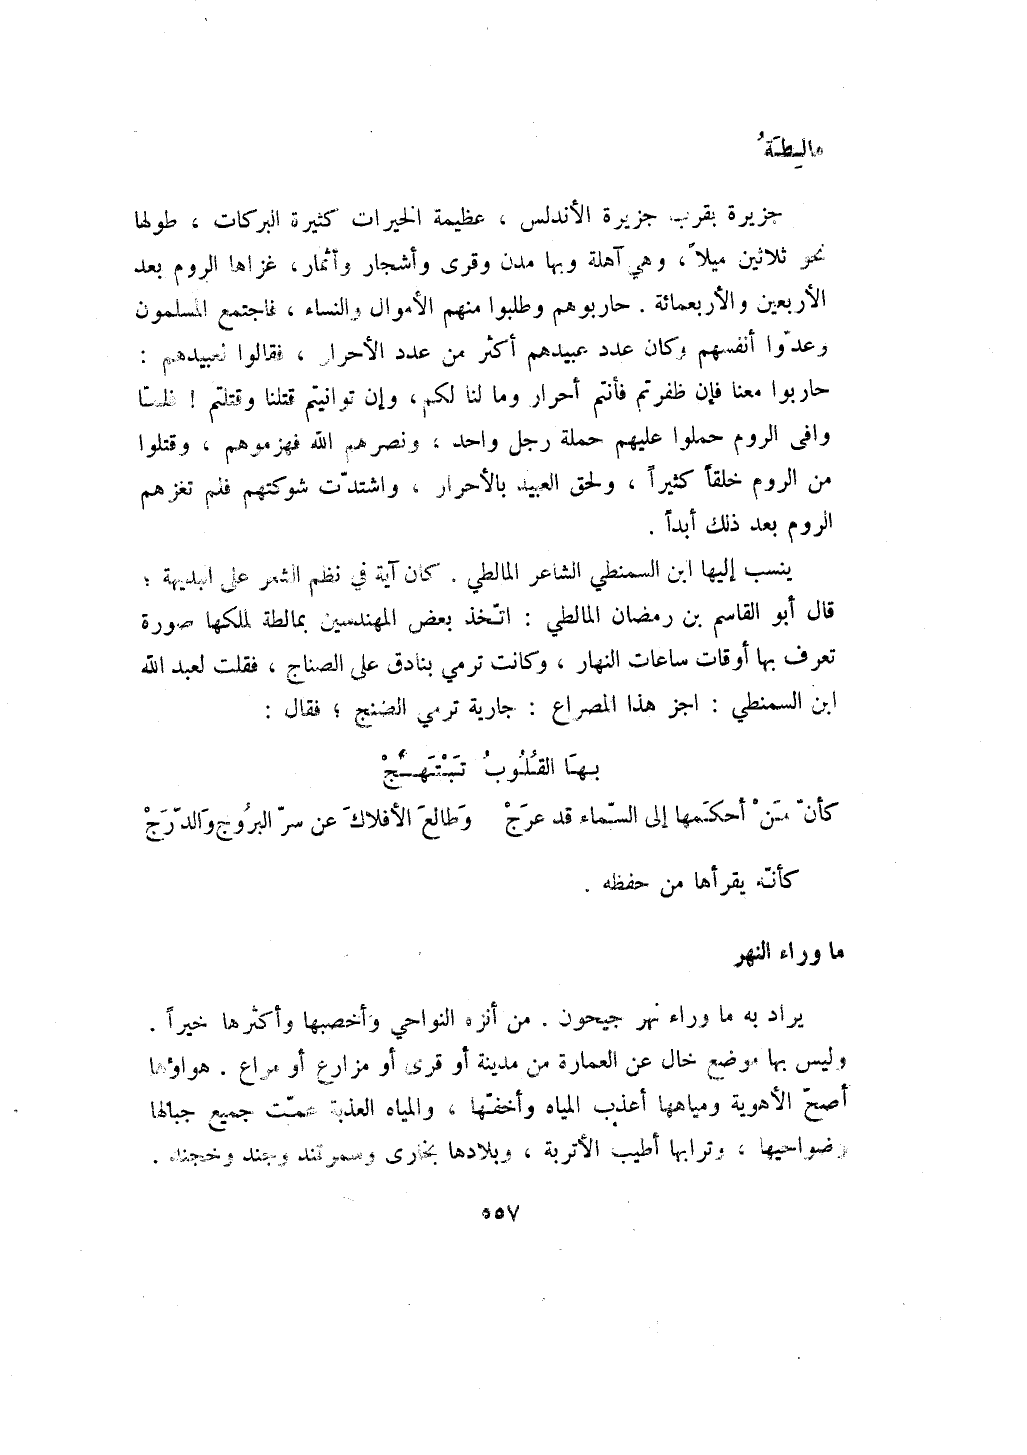 مالِطَةُ
جزيرة بقرب جزيرة الأندلس ، عظيمة الخيرات كثيرة البركات ، طولها
نحو ثلاثين ميلاً ، وهي آهلة وبها مدن وقرى وأشجار وأثمار، غزاها الروم بعد
الأربعين والأربعمائة . حاربوهم وطلبوا منهم الأموال والنساء ، فاجتمع المسلمون
وعدّوا أنفسهم وكان عدد عبيدهم أكثر من عدد الأحرار ، فقالوا لعبيدهم :
حاربوا معنا فإن ظفرتم فأنتم أحرار وما لنا لكم، وإن توانيتم قتلنا وقتلتم ! فلمّا
وافى الروم حملوا عليهم حملة رجل واحد ، ونصرهم الله فهزموهم ، وقتلوا
من الروم خلقاً كثيراً ، ولحق العبيد بالأحرار ، واشتدّت شوكتهم فلم تغزهم
الروم بعد ذلك أبداً .
ينسب إليها ابن السمنطي الشاعر المالطي . كان آية في نظم الشعر على البديهة ؛
قال أبو القاسم بن رمضان المالطي : اتّخذ بعض المهندسين بمالطة لملكها صورة
تعرف بها أوقات ساعات النهار ، وكانت ترمي بنادق على الصناج ، فقلت لعبد الله
ابن السمنطي : اجز هذا المصراع : جارية ترمي الصّنج ؛ فقال :
بهَا القُلُوبُ تَبْتَهِجْ
كأنّ مَنْ أحكَمها إلى السّماء قد عرَجْ وَطالعَ الأفلاكَ عن سرّ البرُوج وَالدّرَجْ
كأنّه يقرأها من حفظه .
ما وراء النهر
يراد به ما وراء نهر جيحون . من أنزه النواحي وأخصبها وأكثرها خيراً .
وليس بها موضع خال عن العمارة من مدينة أو قرى أو مزارع أو مراع . هواؤها
أصحّ الأهوية ومياهها أعذب المياه وأخفّها ، والمياه العذبة عمّت جميع جبالها
وضواحيها ، وترابها أطيب الأتربة ، وبلادها بخارى وسمرقند وجند وخجند .
٥٥٧